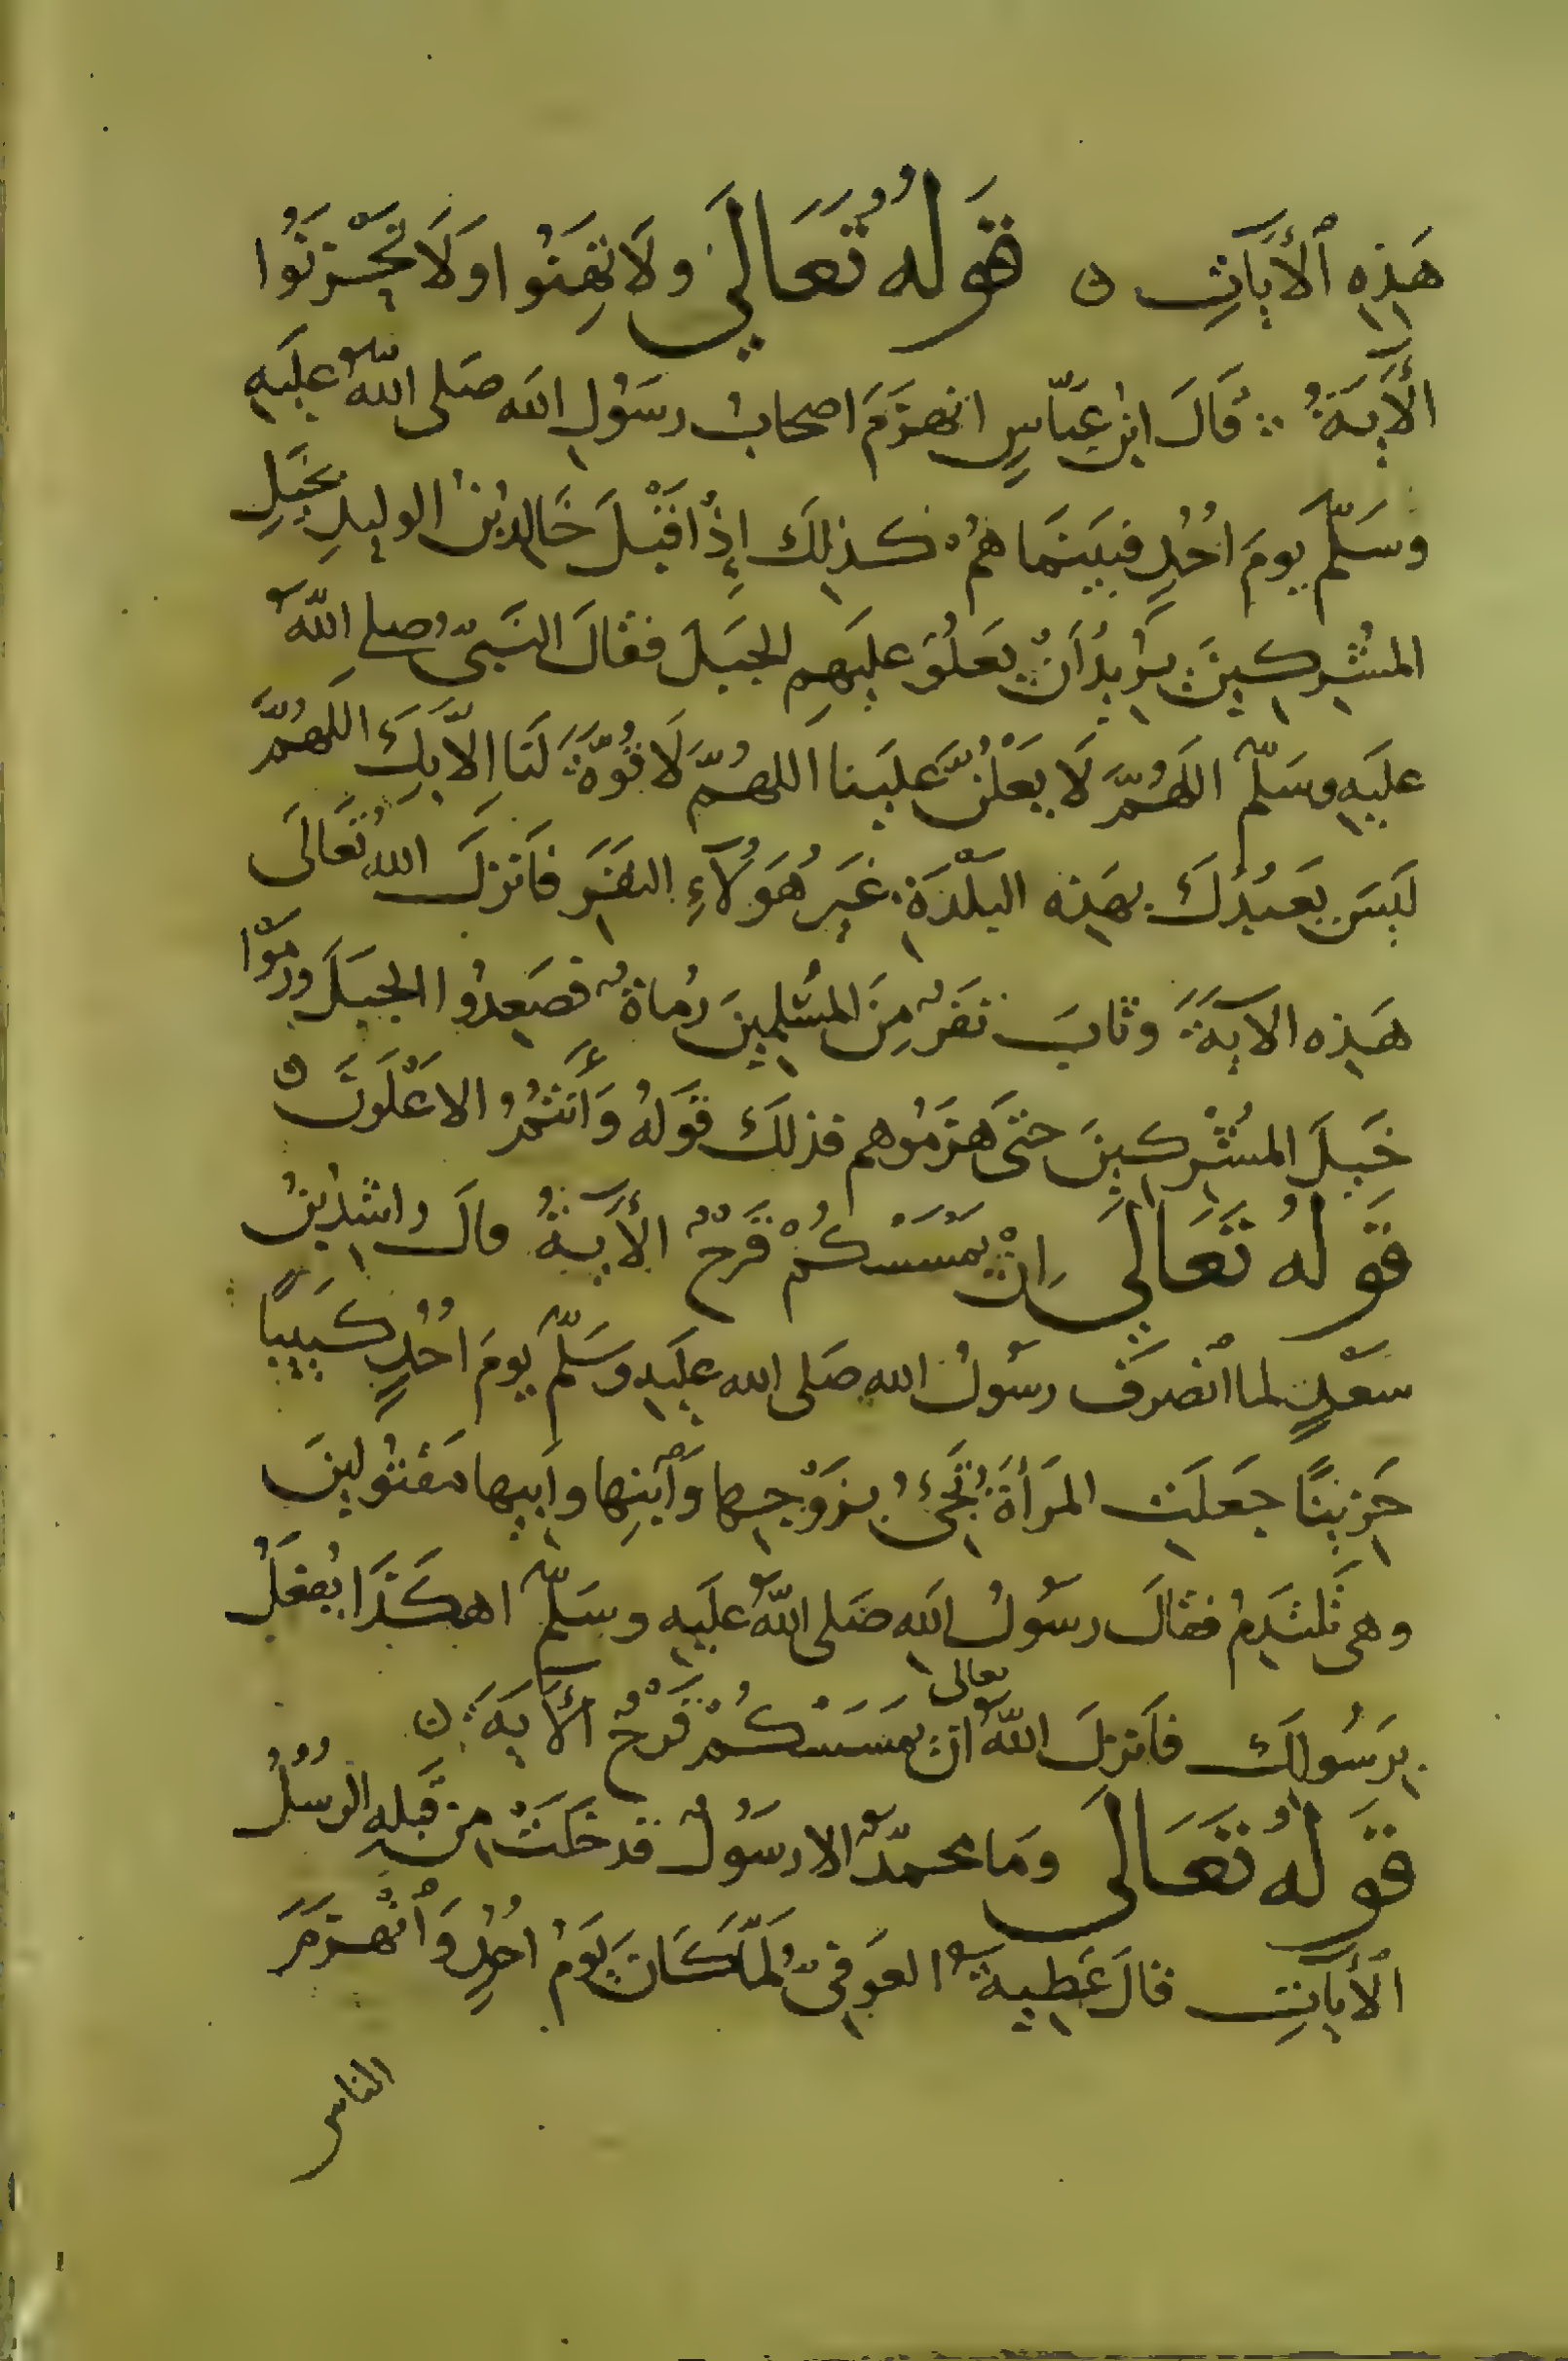 هَذِهِ ٱلْأَيَاتِ ٥ قَوْلُهُ تَعَالَى وَلَا تَهِنُوا وَلَا تَحْزَنُوا
ٱلْأَيَةُ ∴ قَالَ ابْنُ عَبَّاسٍ انْهَزَمَ اصحابُ رسُولِ اللَه صَلى اللّهُ عليَهِ
وسَلّمَ يومَ اُحُدٍ فبيَنَما هُمْ كذلِكَ إِذْ اقْبَلَ خَالِدُ بْنُ الوليِدِ بخَيلِ
المشُرِكيِنَ يرُيِدُ أَنْ يَعلُوَ عليَهِم الجبَلَ فقالَ النَبيُّ صلى اللّه
عليَهِ وسَلّمَ اللَهُمَّ لَا يَعْلُنَّ عليَنا اللهُمَّ لَا قُوّةَ لَنَا إلاَّ بِكَ اللَهُمَّ
ليَسَ يَعبُدُكَ بهَذِه البَلْدَةِ غيَرُ هَوُلَآءِ النفَرِ فَأنزلَ اللهُ تَعَالَى
هَذِه الآيةَ وثابَ نَفرٌ مِنَ المسُلِميِنَ رُماةٌ فصَعِدُوا الجبَلَ ورمَوْا
خَيلَ المشُرِكيِنَ حتىَ هَزمُوهم فذلكَ قَولُهُ وَأَنْتُمُ الاعَلَوْنَ ٥
قَوْلُهُ تَعَالَى إنْ يَمْسَسْكُمْ قَرْحٌ الأَيةُ قالَ راشدُ بْنُ
سَعْدٍ لما انْصرَفَ رسَوُلُ الله صَلى الله عليَهِ وسَلّمَ يومَ اُحُدٍ كَئِيبًا
حَزِينًا جَعلَتِ المرَأةُ تَجيُ بزَوْجِها وَٱبْنِها وابَيِها مَقتُوليِنَ
وهى تَلتَدِمُ فقالَ رسَوُلُ اللَهِ صَلى اللّهُ عليَهِ وسَلّمَ اهكَذَا يُفعَلُ
برَسُولِكَ فأنزلَ اللّهُ تعالى ان يمَسَسْكُمْ قَرْحٌ الأيَةَ ن
قَوْلُهُ تَعَالَى ومَا محمدٌ الا رسَوُلٌ قد خلَتْ مِن قَبلِهِ الرسُلُ
ٱلْأَيَاتِ قالَ عَطِيةُ العَوفِيُّ لمَّا كَانَ يَومُ اُحُدٍ وَٱنْهزمَ
الناس